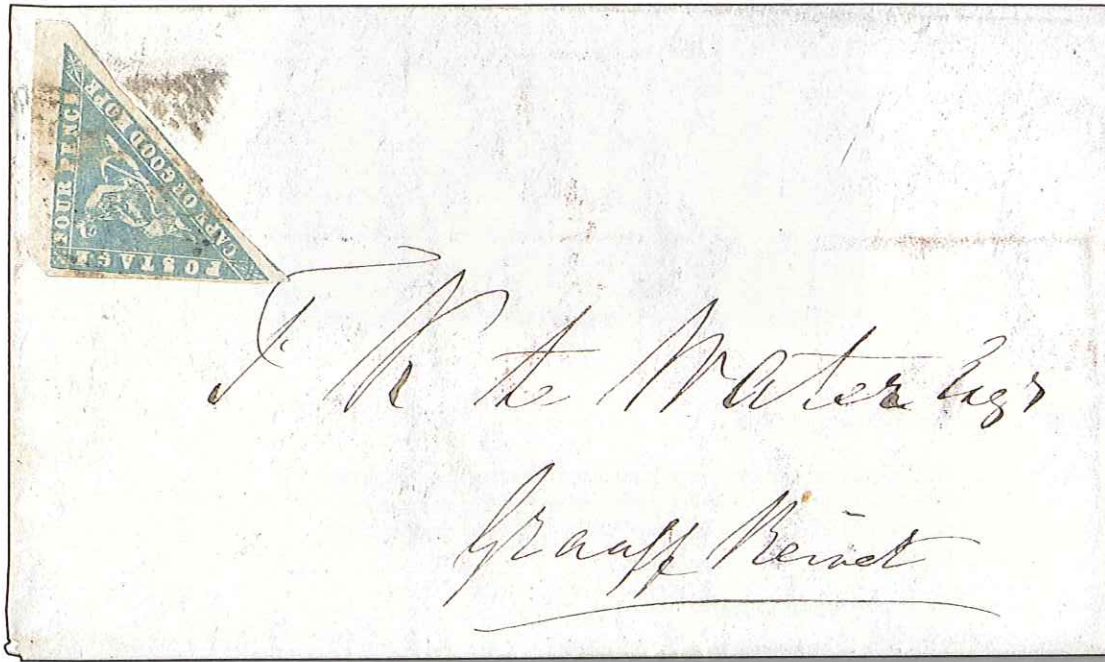 POSTAGE
FOUR PENCE
CAPE OF GOOD HOPE
F K te Water Esqr
Graaff Reinet